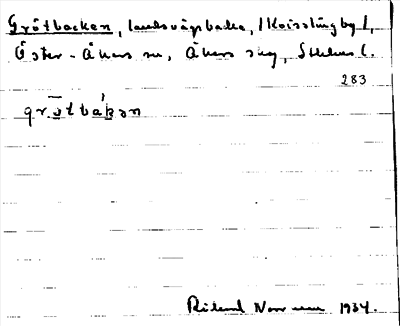 Grötbacken, landsvägsbacke, (Roisslingby),
Öster-Åkers sn, Åkers skg, Sthlms l.
283
grötbakən
Rikard Norrman 1934.